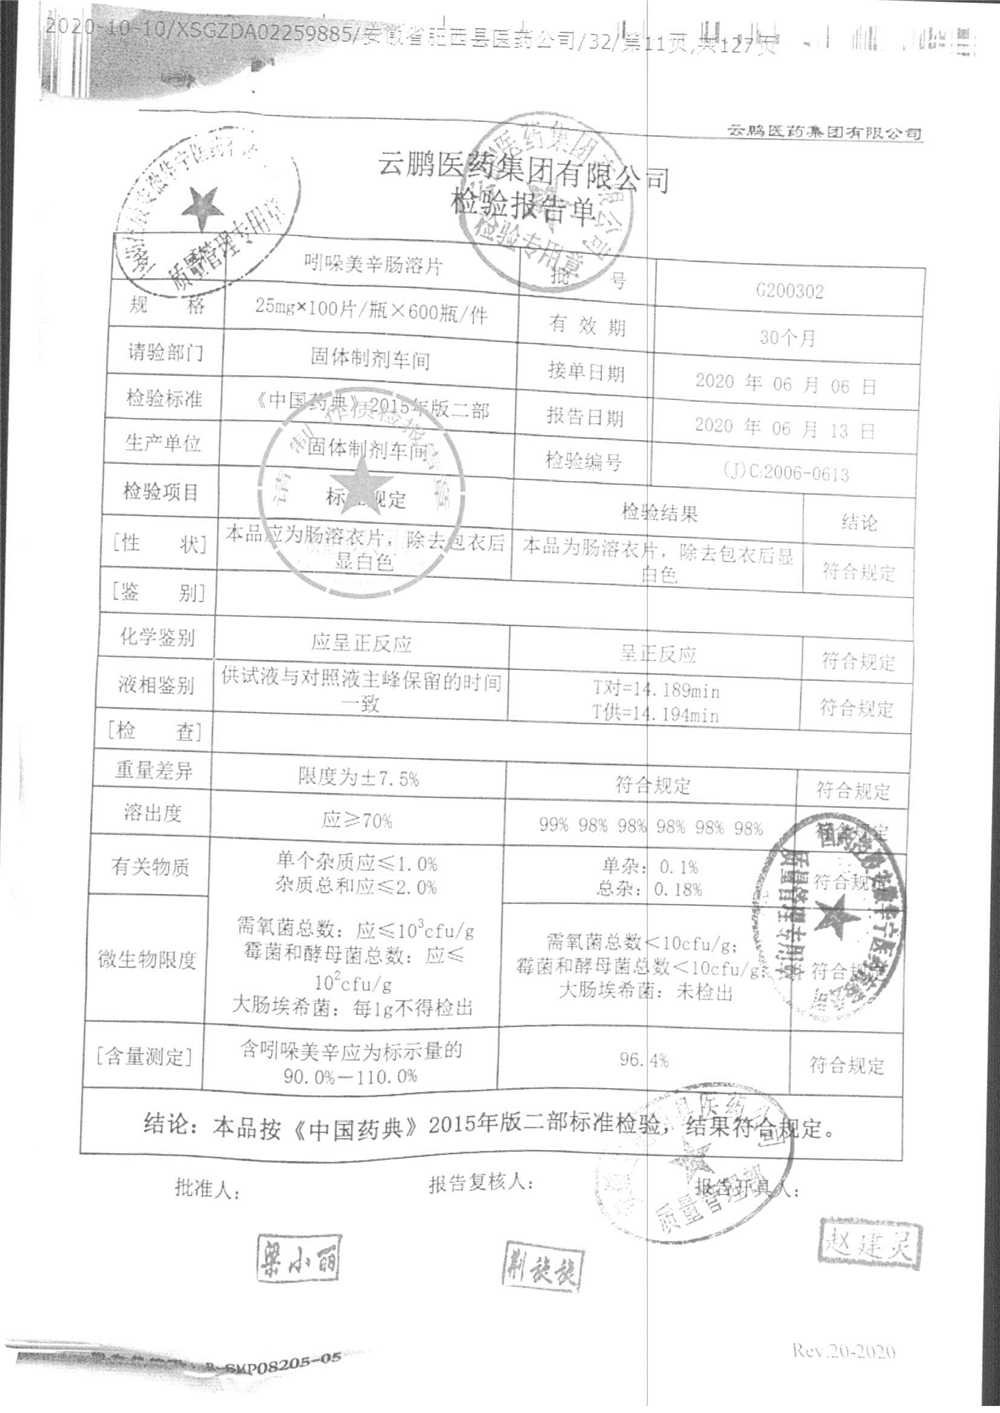 2020-10-10/XSGZDA02259885/安徽省肥西县医药公司/32/第11页,共127页
云鹏医药集团有限公司
云鹏医药集团有限公司
检验报告单
检验专用章
质量管理专用章
吲哚美辛肠溶片 批 号 G200302
规 格 25mg×100片/瓶×600瓶/件 有 效 期 30个月
请验部门 固体制剂车间 接单日期 2020 年 06 月 06 日
检验标准 《中国药典》2015年版二部 报告日期 2020 年 06 月 13 日
生产单位 固体制剂车间 检验编号 (J)C:2006-0613
检验项目 标准规定 检验结果 结论
[性 状] 本品应为肠溶衣片，除去包衣后显白色 本品为肠溶衣片，除去包衣后显白色 符合规定
[鉴 别]
化学鉴别 应呈正反应 呈正反应 符合规定
液相鉴别 供试液与对照液主峰保留的时间一致 T对=14.189min T供=14.194min 符合规定
[检 查]
重量差异 限度为±7.5% 符合规定 符合规定
溶出度 应≥70% 99% 98% 98% 98% 98% 98% 符合规定
有关物质 单个杂质应≤1.0% 杂质总和应≤2.0% 单杂：0.1% 总杂：0.18% 符合规定
微生物限度 需氧菌总数：应≤10³cfu/g 霉菌和酵母菌总数：应≤10²cfu/g 大肠埃希菌：每1g不得检出 需氧菌总数<10cfu/g; 霉菌和酵母菌总数<10cfu/g; 大肠埃希菌：未检出 符合规定
[含量测定] 含吲哚美辛应为标示量的90.0%－110.0% 96.4% 符合规定
结论：本品按《中国药典》2015年版二部标准检验，结果符合规定。
批准人： 报告复核人： 报告开具人：
质量管理部
梁小丽 荆旋旋 赵建灵
SMP08205-05
Rev.20-2020